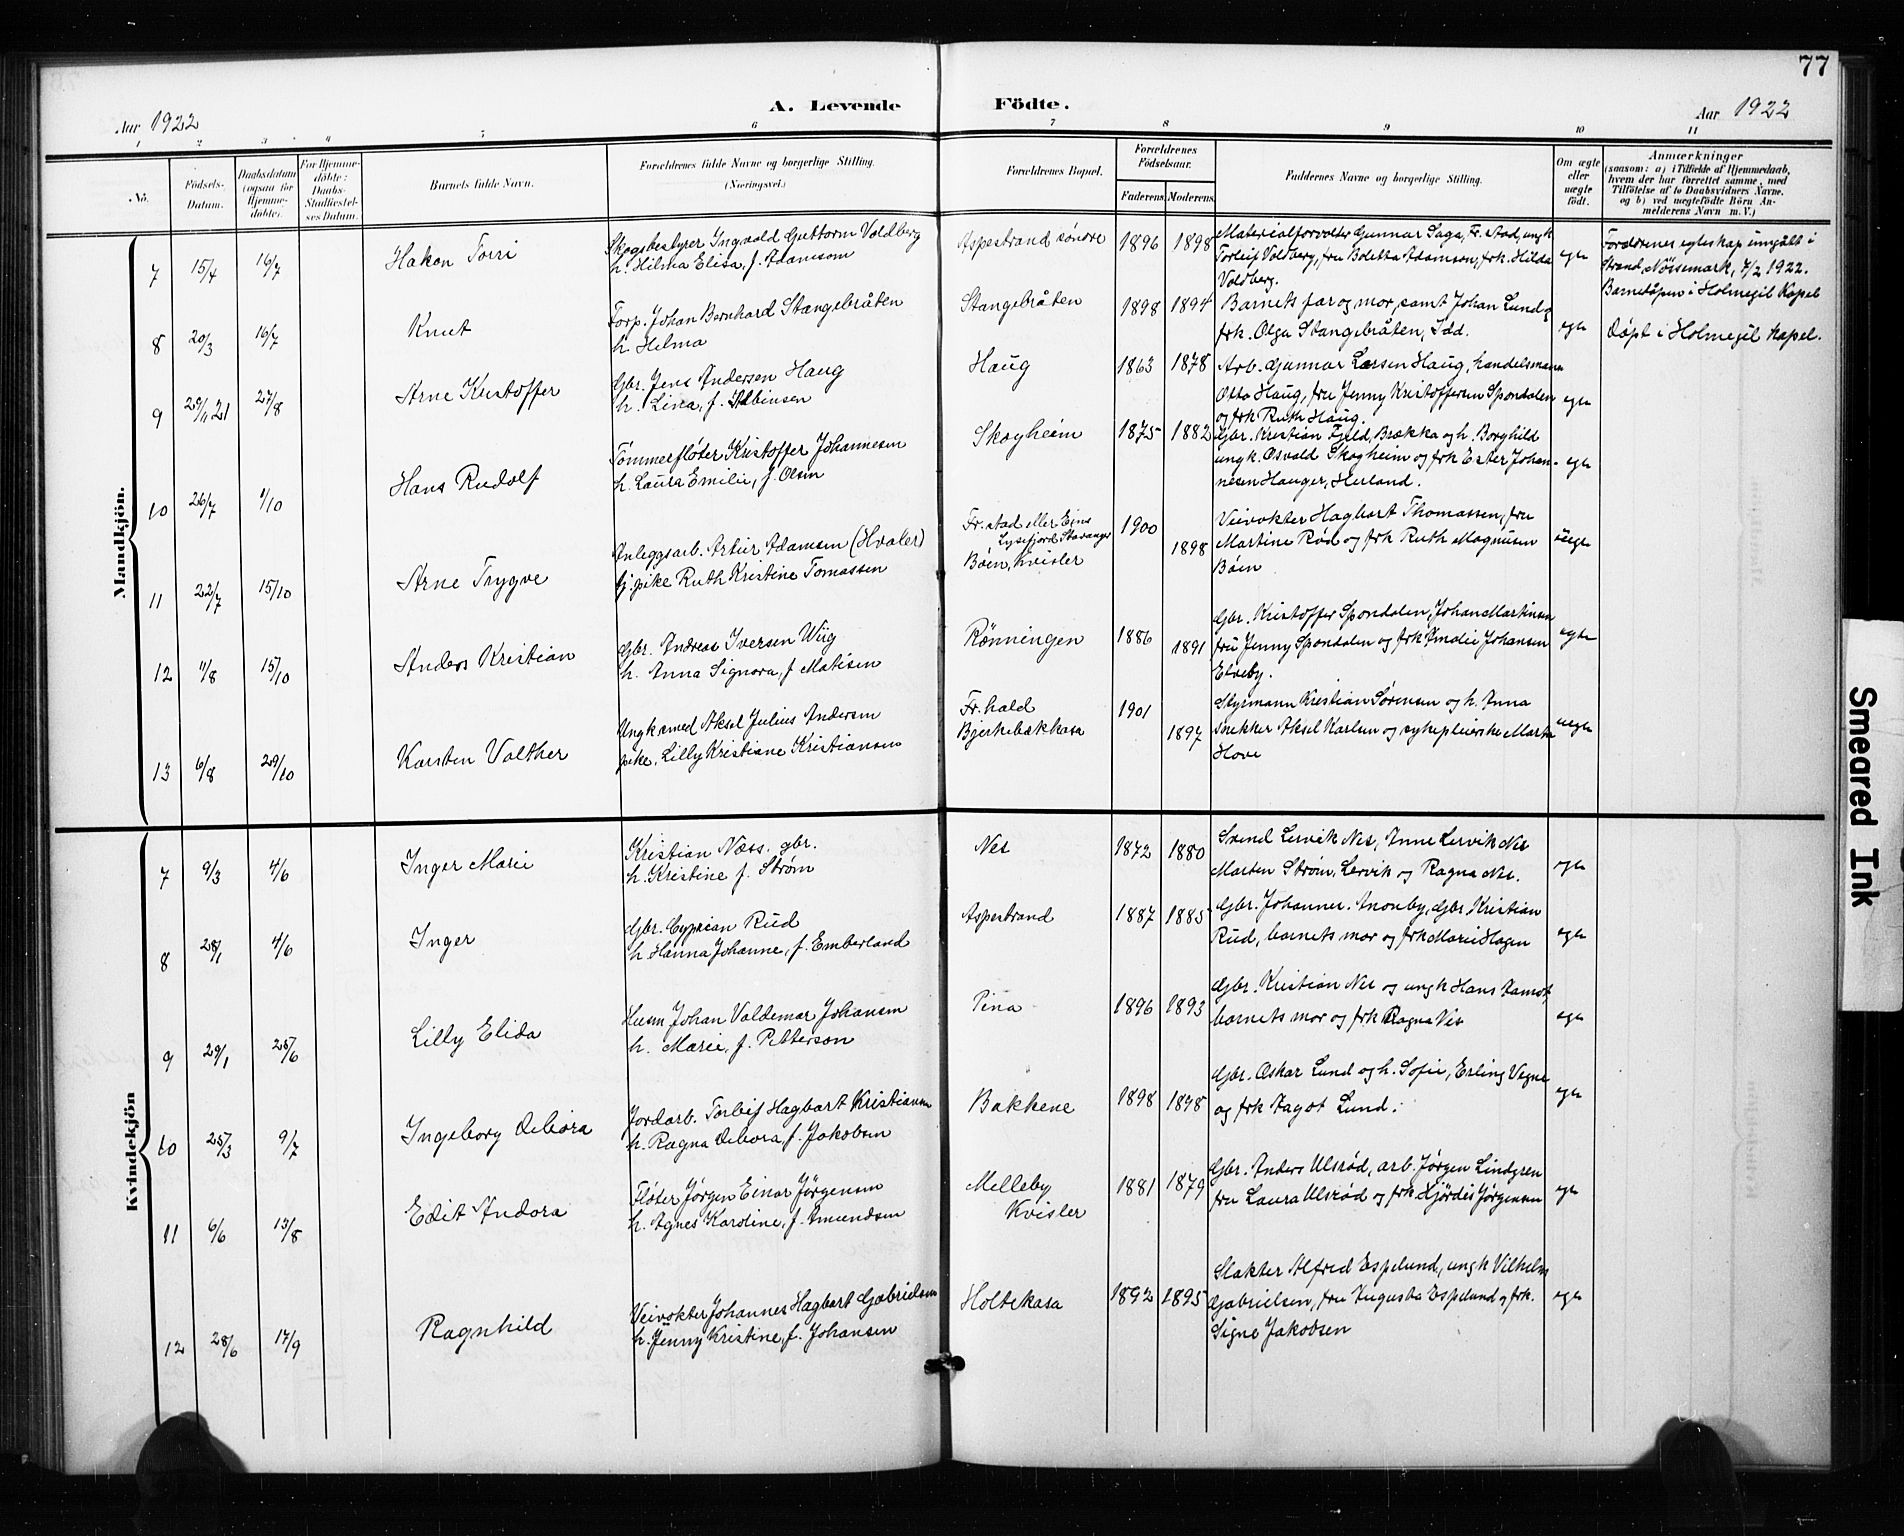 77
Aar 1922
A. Levende
Födte.
Aar 1922
1 2 3 4 5 6 7 8 9 10 11
No.
Födsels-
Datum.
Daabsdatum
(ogsaa for
Hjemme-
döbte).
For Hjemme-
döbte:
Daabs-
Stadfæstel-
ses Datum.
Barnets fulde Navn.
Forældrenes fulde Navne og borgerlige Stilling.
(Næringsvei.)
Forældrenes Bopæl.
Forældrenes
Födselsaar.
Faderens
Moderens
Faddernes Navne og borgerlige Stilling.
Om ægte
eller
uægte
født.
Anmærkninger
(saasom: a) i Tilfælde af Hjemmedaab,
hvem der har forrettet samme, med
Tilföielse af to Daabsvidners Navne.
og b) ved uægtefödte Börn An-
melderens Navn m. V.)
Mandkjön.
7 15/4 16/7 Hakon Torri
Skogsbestyrer Ingvald Guttorm Voldberg
h. Hilma Elisa, f. Adamsom
Aspestrand søndre 1896 1898
Materialforvalter Gunnar Saga, Fr.stad, ungk
Torleif Voldberg, fru Boletta Adamson, frk. Hilda
Voldberg.
egte
Foreldrenes egteskap inngått i
Strand, Nössemark, 7/2 1922.
Barnet døpen i Holmegil Kapel
8 20/3 16/7 Knut
Forp. Johan Bernhard Stangebråten
h. Helma
Stangebråten 1898 1894
Barnets far og mor, samt Johan Lund og
frk. Olga Stangebråten, Idd.
egte
Døpt i Holmegil kapel.
9 29/11 21 27/8 Arne Kristoffer
Gbr. Jens Andersen Haug
h. Lina, f. Albinsen
Haug 1863 1878
Arb. Gunnar Larsen Haug, handelsmann
Otto Haug, fru Jenny Kristoffersen Spondalen
og frk Ruth Haug.
egte
10 26/7 1/10 Hans Rudolf
Tømmerfløter Kristoffer Johannesen
h. Laura Emilie, f. Olsen
Skogheim 1875 1882
Gbr. Kristian Fjeld, Brækka og h. Borghild
ungk. Osvald Skogheim og frk Ester Johan-
nesen Hauger, Herland.
egte
11 22/7 15/10 Arne Trygve
Anleggsarb. Artur Adamsen (Hvaler)
Gj. pike Ruth Kristine Tomassen
Fr. stad eller Eins
Lysefjord Stavanger
Bøen, Kvisler
1900
1898
Veivokter Hagbart Thomassen, fru
Martine Rød og frk Ruth Magnusen
Bøen
uegte
12 11/8 15/10 Anders Kristian
Gbr. Andreas Iversen Wiig
h. Anna Signora, f Matisen
Rønningen 1886
1891
Gbr. Kristoffer Spondalen, Johan Martinsen
fru Jenny Spondalen og frk Amalie Johansen
Elveby.
egte
13 6/8 29/10 Karsten Valther
Ungkarmed Aksel Julius Andersen
pike, Lilly Kristiane Kristiansen
Fr. hald
Bjerkebækkasa
1901
1897
Styrmann Kristian Sørensen og h. Anna
Snekker Aksel Karlsen og sykepleierske Marta
Hove
uegte
Kvindekjön
7 9/3 4/6 Inger Marie
Kristian Næss. gbr.
h. Kristine f. Strøm
Nes 1872 1880
Svend Lervik Nes, Anne Lervik Nes
Marten Strøm, Lervik og Ragna Nes.
egte
8 28/1 4/6 Inger
Gbr. Cyprian Rud
h. Hanna Johanne, f. Emberland
Aspestrand 1887 1885
Gbr. Johannes. Anonby, Gbr. Kristian
Rud, barnets mor og frk Marie Hagen
egte
9 29/1 25/6 Lilly Elida
Husm Johan Valdemar Johansen
h. Marie, f. Petterson
Pina 1896 1893
Gbr. Kristian Nes og ungk Hans
barnets mor og frk Ragna Nes
egte
10 25/3 9/7 Ingeborg Debora
Jordarb. Torleif Hagbart Kristiansen
h. Ragna Debora, f. Jakobsen
Bakkene 1898 1898
Gbr. Oskar Lund og h. Sofie, Erling Vegne
og frk Dagot Lund.
egte
11 6/6 13/8 Edit Andora
Fløter Jørgen Einar Jørgensen
h. Agnes Karoline, f. Amundsen
Melleby
Kvisler
1881 1879
Gbr. Anders Ulsrød, arb. Jørgen Lindgren
fru Laura Ulsrød og frk. Hjördis Jørgensen
egte
12 28/6 17/9 Ragnhild
Veivokter Johannes Hagbart Gabrielsen
h. Jenny Kristine, f. Johansen
Holtekasa 1892 1895
Slakter Alfred Espelund, ungk Vilhelm
Gabrielsen, fru Augusta Espelund og frk.
Signe Jakobsen
egte
Smeared Ink